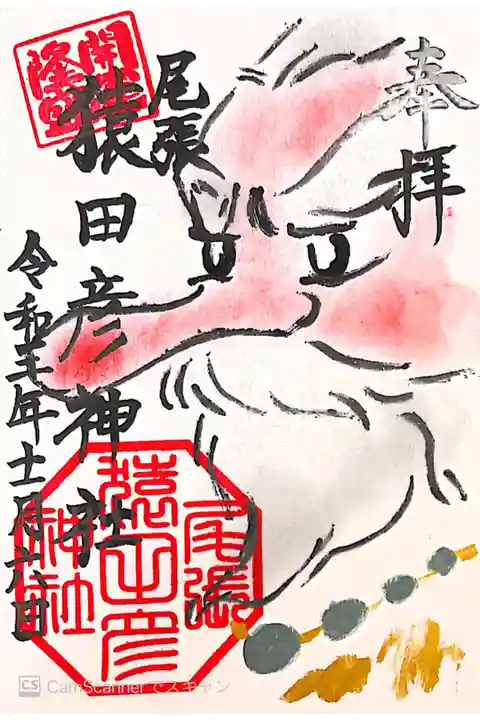 奉拝
尾張
猿田彦神社
令和年月日
尾張
猿田彦
神社
CS CamScanner でスキャン